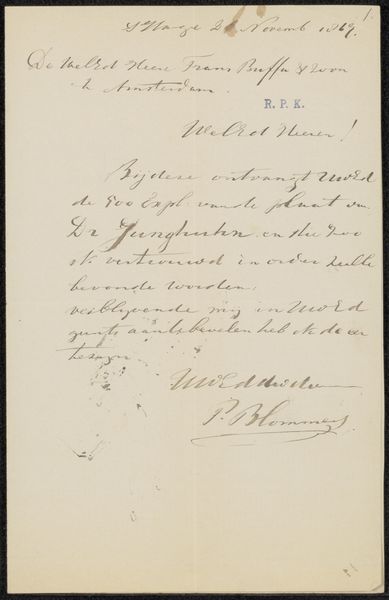 1.
S'Hage 2 Novemb 1869.
De WelEd Heere Frans Buffa & Zoon
te Amsterdam.
R. P. K.
WelEd Heeren!
Bijdese ontvangt UwEd
de 900 Expl van de plaat van
Dr Junghuhn en die zoo
ik vertrouwd in orde zulle
bevonde worden.
verblyvende mij in UwEd
gunst aantebevelen heb ik de eer
te zyn
UWEd
P. Blommers